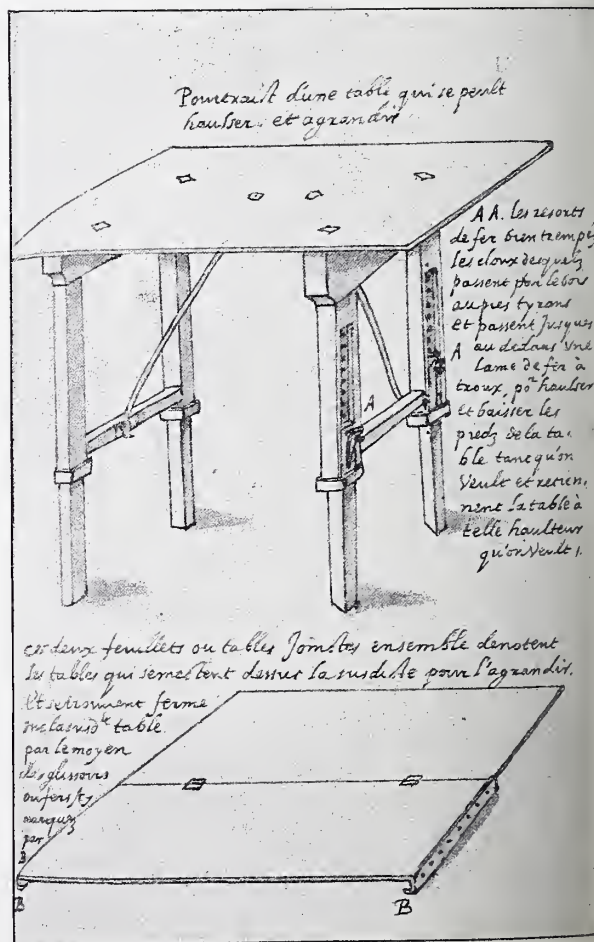 Pourtraist d'une table qui se peult
haulser et agrandir
A A. les resorts
de fer bien trempez
les cloux desquelz
passent par le bois
aupres tyrans
et passent Jusques
A au dedans une
lame de fer à
troux po.r haulser
et baisser les
piedz de la ta-
ble tant qu'on
veult et retien,
nent la table à
telle haulteur
qu'on veult.
A
ces deux feuillets ou tables Joinctes ensemble denotent
les tables qui se mectent dessus la susdiste pour l'agrandir.
Et se trouvent ferme
sur la susd.te table
par le moyen
des glissoirs
ou fers
marquez
par
B
B
B